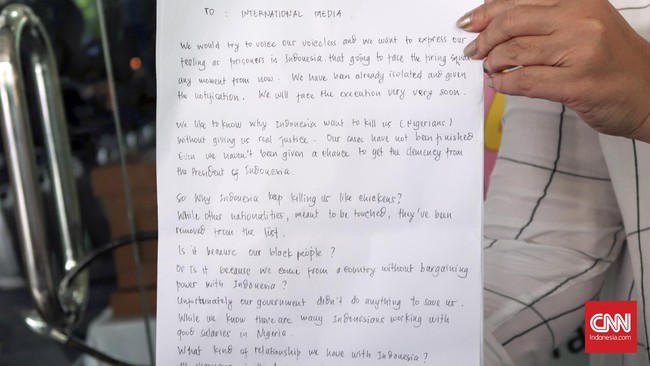 TO : INTERNATIONAL MEDIA
We would try to voice our voiceless and we want to express our
feeling as prisoners in Indonesia that going to face the firing squad
any moment from now. We have been already isolated and given
the notification. We will face the execution very very soon.
We like to know why Indonesia want to kill us (Nigerians)
without giving us real justice. Our cases have not been finished.
Even we haven't been given a chance to get the clemency from
the President of Indonesia.
So why Indonesia keep killing us like chickens?
While other nationalities, meant to be touched, they've been
removed from the list.
Is it because our black people?
Or is it because we come from a country without bargaining
power with Indonesia?
Unfortunately our government didn't do anything to save us.
While we know there are many Indonesians working with
good salaries in Nigeria.
What kind of relationship we have with Indonesia?
CNN
Indonesia.com